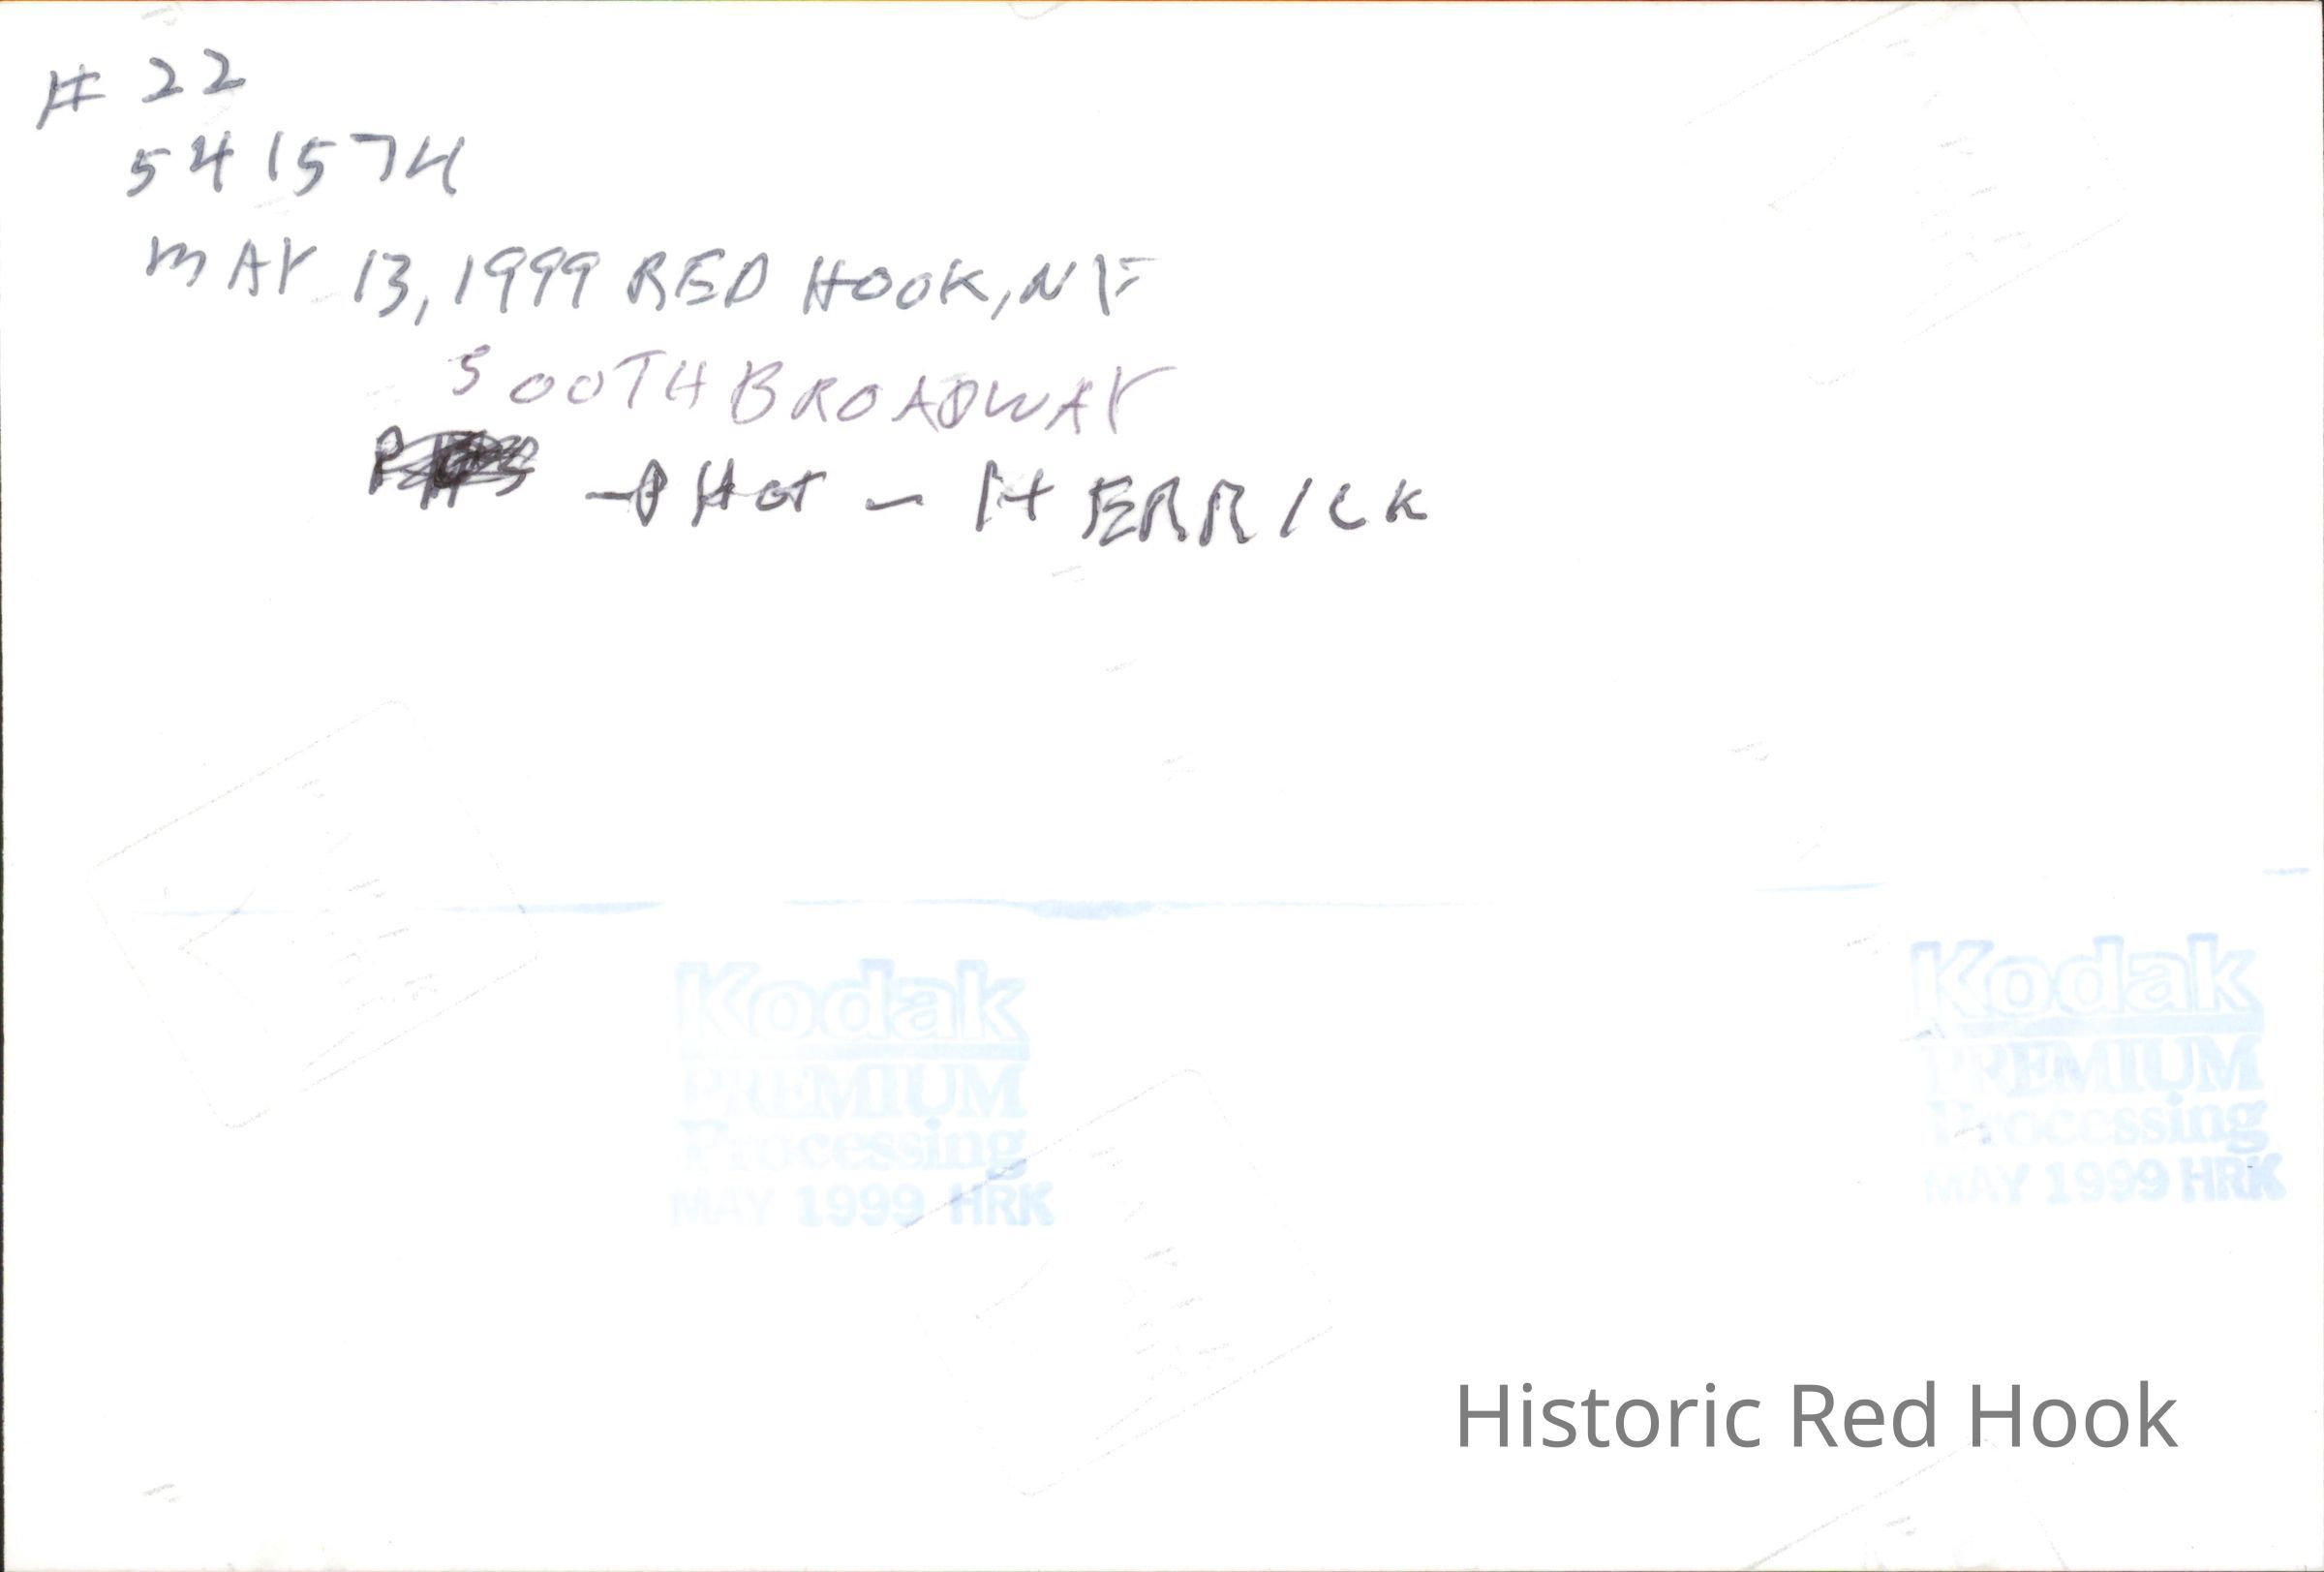 # 22
541574
MAY 13, 1999 RED HOOK, NY
SOUTH BROADWAY
- PHOT - HERRICK
Kodak
PREMIUM
Processing
MAY 1999 HRK
Kodak
PREMIUM
Processing
MAY 1999 HRK
Historic Red Hook